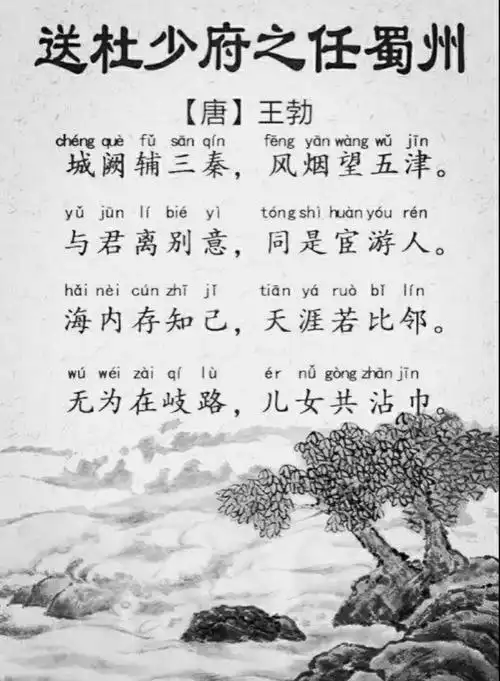 送杜少府之任蜀州
【唐】王勃
chéng què fǔ sān qín fēng yān wàng wǔ jīn
城阙辅三秦，风烟望五津。
yǔ jūn lí bié yì tóng shì huàn yóu rén
与君离别意，同是宦游人。
hǎi nèi cún zhī jǐ tiān yá ruò bǐ lín
海内存知己，天涯若比邻。
wú wéi zài qí lù ér nǚ gòng zhān jīn
无为在岐路，儿女共沾巾。